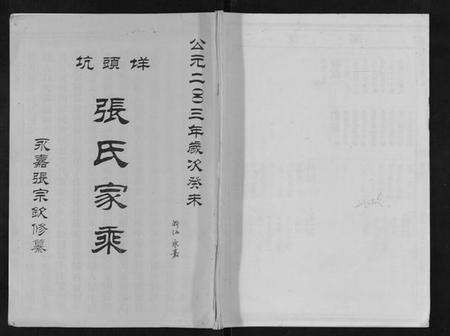 公元二〇〇三年歲次癸未
坑頭垟
張氏家乘
永嘉張宗欽修纂
浙江永嘉